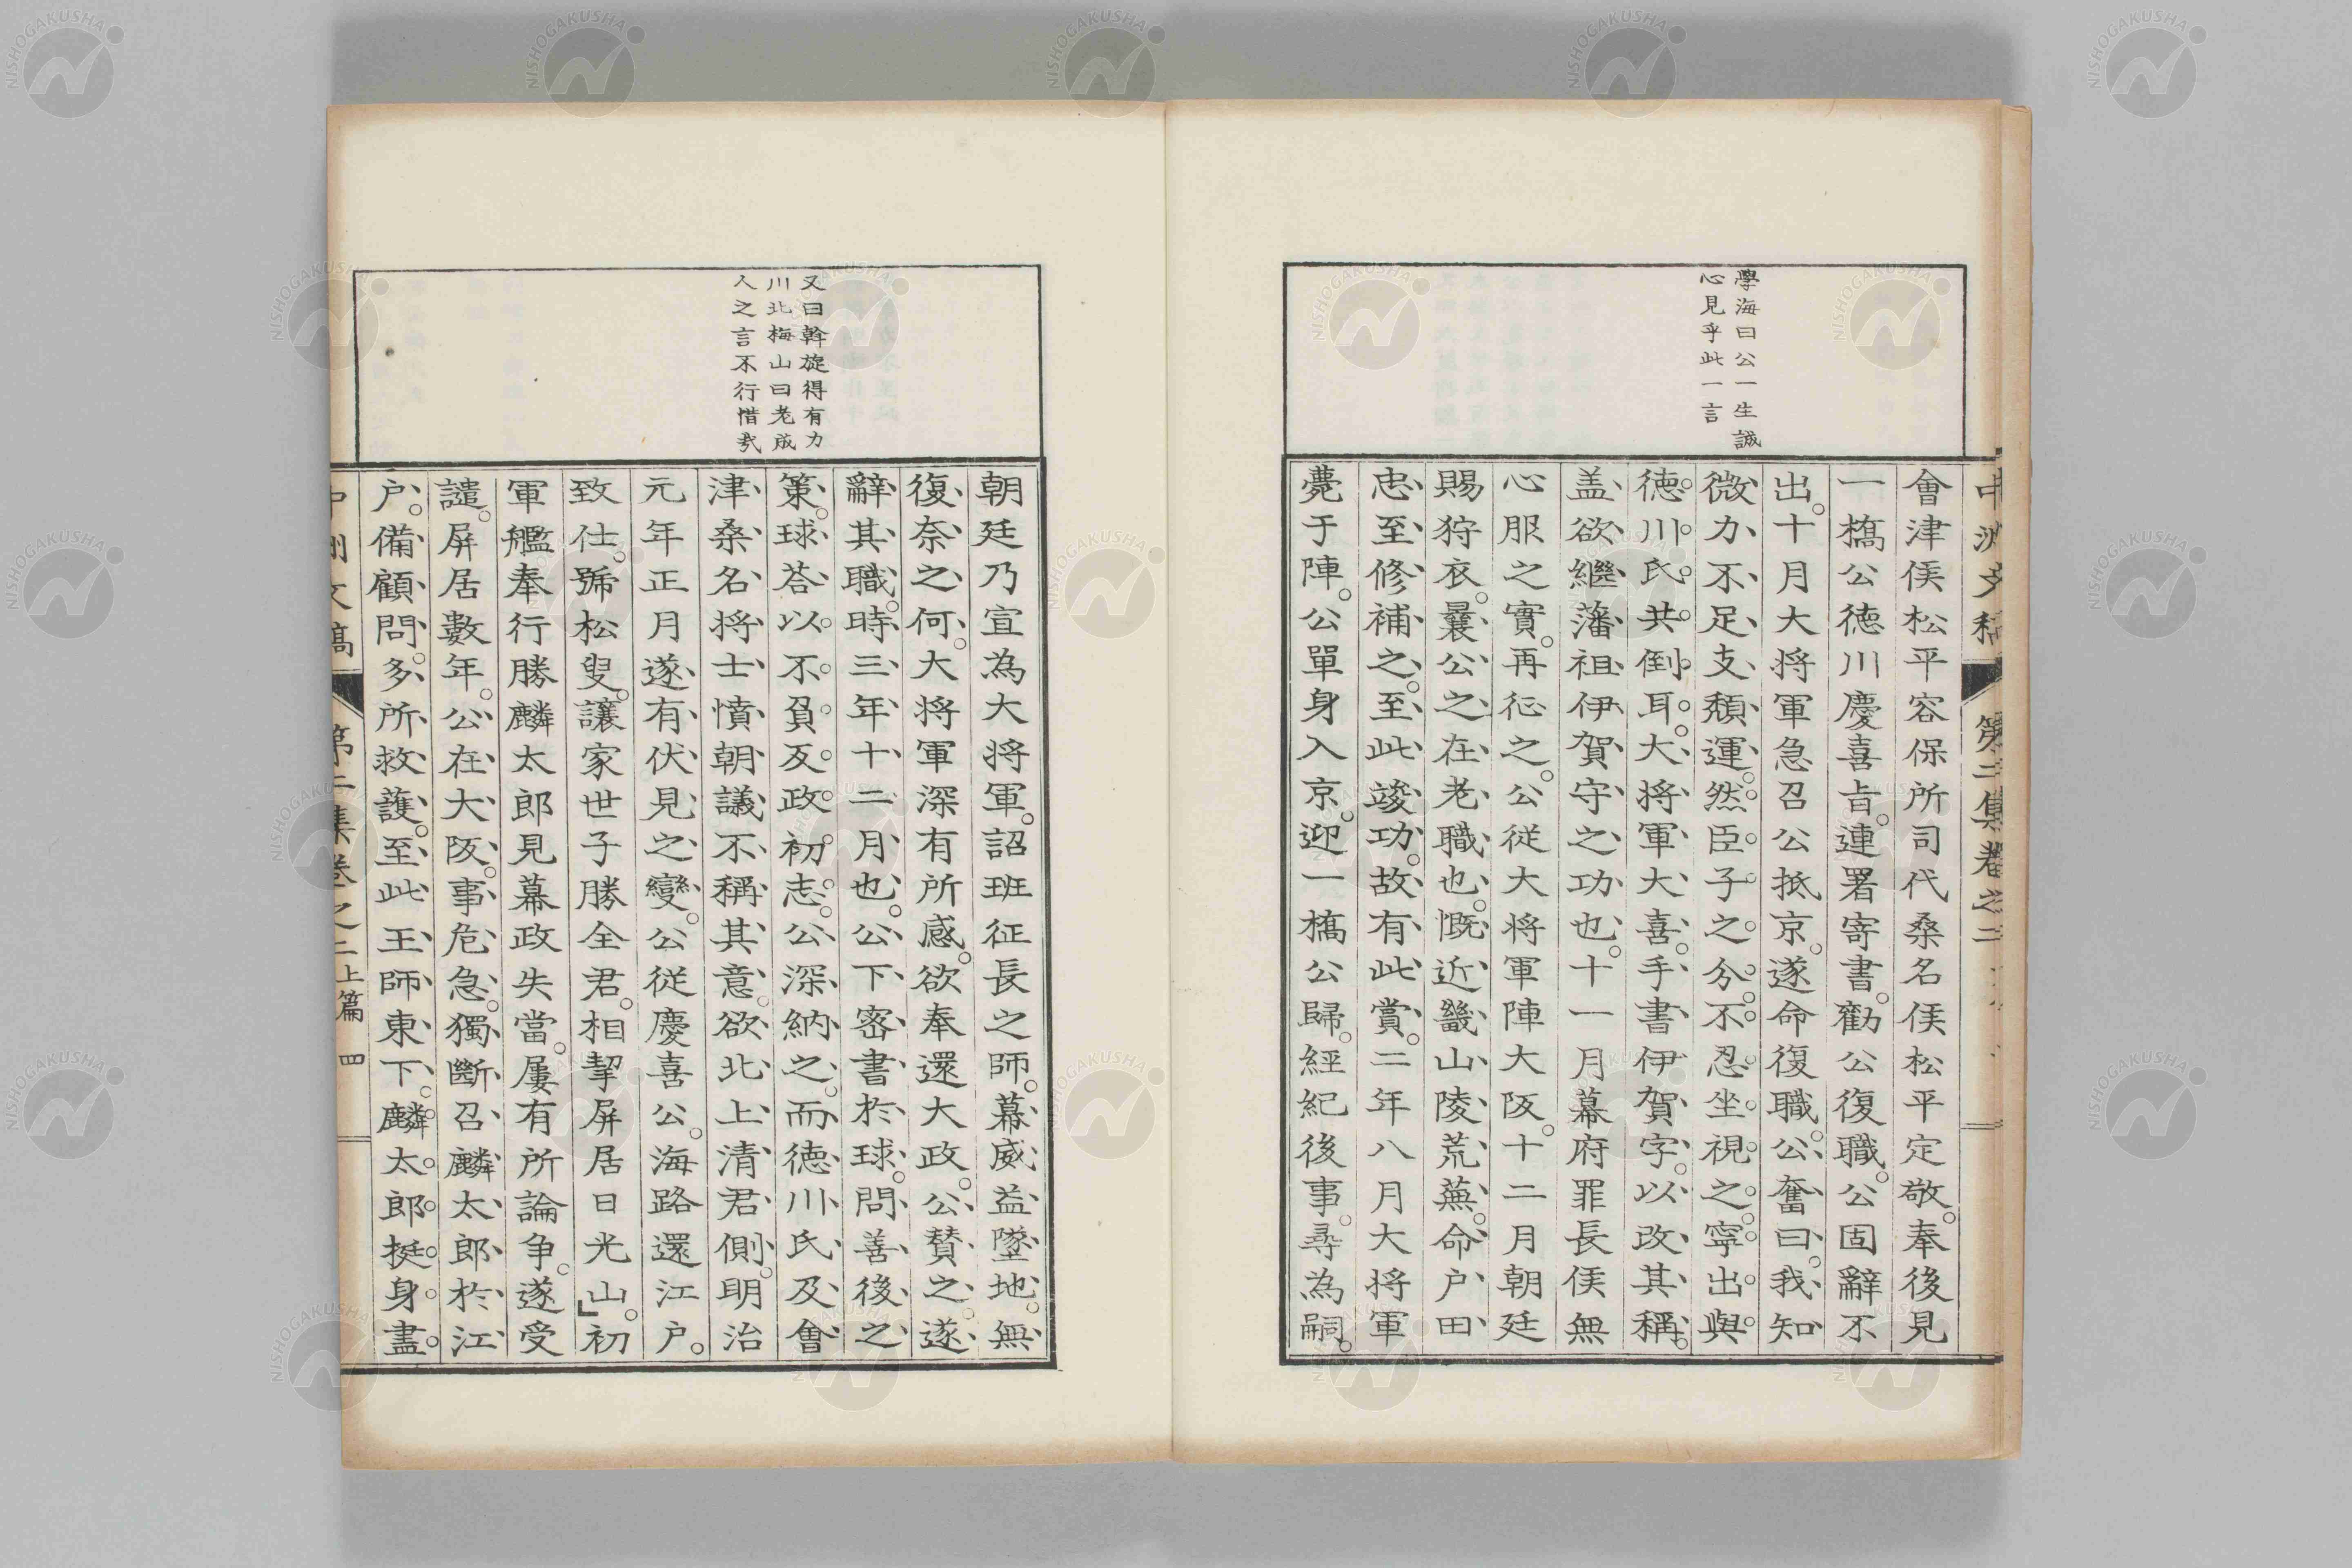 學海曰公一生誠
心見乎此一言
會津侯松平容保所司代桑名侯松平定敬。奉後見
一橋公德川慶喜旨。連署寄書。勸公復職。公固辭不
出。十月大將軍急召公抵京。遂命復職。公奮曰。我知
微力不足支頽運。然臣子之分。不忍坐視之。寧出與
德川氏共倒耳。大將軍大喜。手書伊賀字。以改其稱。
盖欲繼藩祖伊賀守之功也。十一月幕府罪長侯無
心服之實。再征之。公從大將軍陣大阪。十二月朝廷
賜狩衣。曩公之在老職也。慨近畿山陵荒蕪。命戶田
忠至修補之。至此竣功。故有此賞。二年八月大將軍
薨于陣。公單身入京。迎一橋公歸。經紀後事。尋為嗣。
又曰斡旋得有力
川北梅山曰老成
人之言不行惜哉
朝廷乃宣為大將軍。詔班征長之師。幕威益墜地。無
復奈之何。大將軍深有所感。欲奉還大政。公贊之。遂
辭其職。時三年十二月也。公下密書於球。問善後之
策。球荅以不負反政初志。公深納之。而德川氏及會
津桑名將士憤朝議不稱其意。欲北上清君側。明治
元年正月遂有伏見之變。公從慶喜公。海路還江戶。
致仕。號松叟。讓家世子勝全君。相挈屏居日光山。初
軍艦奉行勝麟太郎見幕政失當。屢有所論爭。遂受
譴。屏居數年。公在大阪。事危急。獨斷召麟太郎於江
戶。備顧問。多所救護。至此王師東下。麟太郎挺身盡
中洲文稿 第二集卷之二 上篇 四